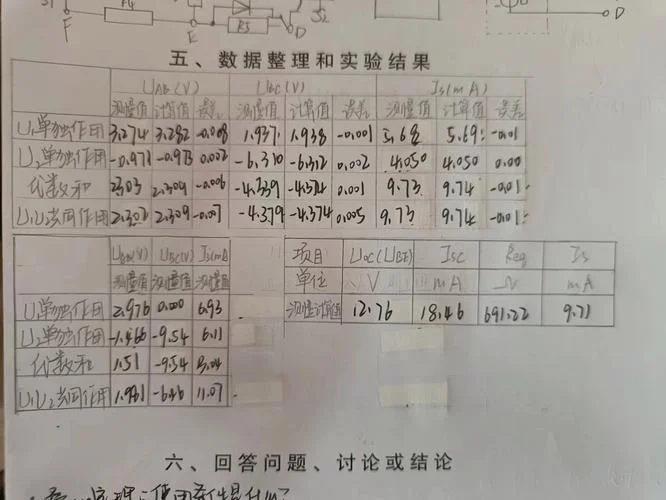 R4
R5
S2
F
E
D
D
五、数据整理和实验结果
UAB(V) UBC(V) I5(mA)
测量值 计算值 误差 测量值 计算值 误差 测量值 计算值 误差
U1单独作用 3.274 3.282 -0.008 1.937 1.938 -0.001 5.68 5.69 -0.01
U2单独作用 -0.971 -0.973 0.002 -6.310 -6.312 0.002 4.050 4.050 0.00
代数和 2.303 2.309 -0.006 0.001 9.73 9.74 -0.01
U1U2共同作用 2.302 2.309 -0.007 -4.379 -4.374 0.005 9.73 9.74 -0.01
UAB(V) UBC(V) I5(mA)
测量值 测量值 测量值
U1单独作用 2.976 0.000 6.93
U2单独作用 -1.466 -9.54 6.11
代数和 1.51 -9.54
U1U2共同作用 11.07
项目 Uoc Isc Req I5
单位 V mA Ω mA
测量计算值 12.76 18.46 691.22 9.71
六、回答问题、讨论或结论